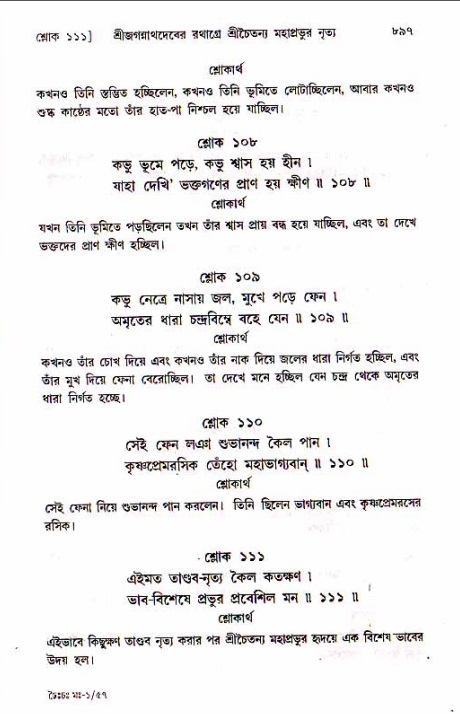 শ্লোক ১১১] শ্রীজগন্নাথদেবের রথাগ্রে শ্রীচৈতন্য মহাপ্রভুর নৃত্য ৮৯৭
শ্লোকার্থ
কখনও তিনি স্তম্ভিত হচ্ছিলেন, কখনও তিনি ভূমিতে লোটাচ্ছিলেন, আবার কখনও
শুষ্ক কাষ্ঠের মতো তাঁর হাত-পা নিশ্চল হয়ে যাচ্ছিল।
শ্লোক ১০৮
কভু ভূমে পড়ে, কভু শ্বাস হয় হীন ।
যাহা দেখি' ভক্তগণের প্রাণ হয় ক্ষীণ ॥ ১০৮ ॥
শ্লোকার্থ
যখন তিনি ভূমিতে পড়ছিলেন তখন তাঁর শ্বাস প্রায় বন্ধ হয়ে যাচ্ছিল, এবং তা দেখে
ভক্তদের প্রাণ ক্ষীণ হচ্ছিল।
শ্লোক ১০৯
কভু নেত্রে নাসায় জল, মুখে পড়ে ফেন ।
অমৃতের ধারা চন্দ্রবিম্বে বহে যেন ॥ ১০৯ ॥
শ্লোকার্থ
কখনও তাঁর চোখ দিয়ে এবং কখনও তাঁর নাক দিয়ে জলের ধারা নির্গত হচ্ছিল, এবং
তাঁর মুখ দিয়ে ফেনা বেরোচ্ছিল। তা দেখে মনে হচ্ছিল যেন চন্দ্র থেকে অমৃতের
ধারা নির্গত হচ্ছে।
শ্লোক ১১০
সেই ফেন লঞা শুভানন্দ কৈল পান ।
কৃষ্ণপ্রেমরসিক তেঁহো মহাভাগ্যবান্ ॥ ১১০ ॥
শ্লোকার্থ
সেই ফেনা নিয়ে শুভানন্দ পান করলেন। তিনি ছিলেন ভাগ্যবান এবং কৃষ্ণপ্রেমরসের
রসিক।
শ্লোক ১১১
এইমত তাণ্ডব-নৃত্য কৈল কতক্ষণ ।
ভাব-বিশেষে প্রভুর প্রবেশিল মন ॥ ১১১ ॥
শ্লোকার্থ
এইভাবে কিছুক্ষণ তাণ্ডব নৃত্য করার পর শ্রীচৈতন্য মহাপ্রভুর হৃদয়ে এক বিশেষ ভাবের
উদয় হল।
চৈঃচঃ মঃ-১/৫৭